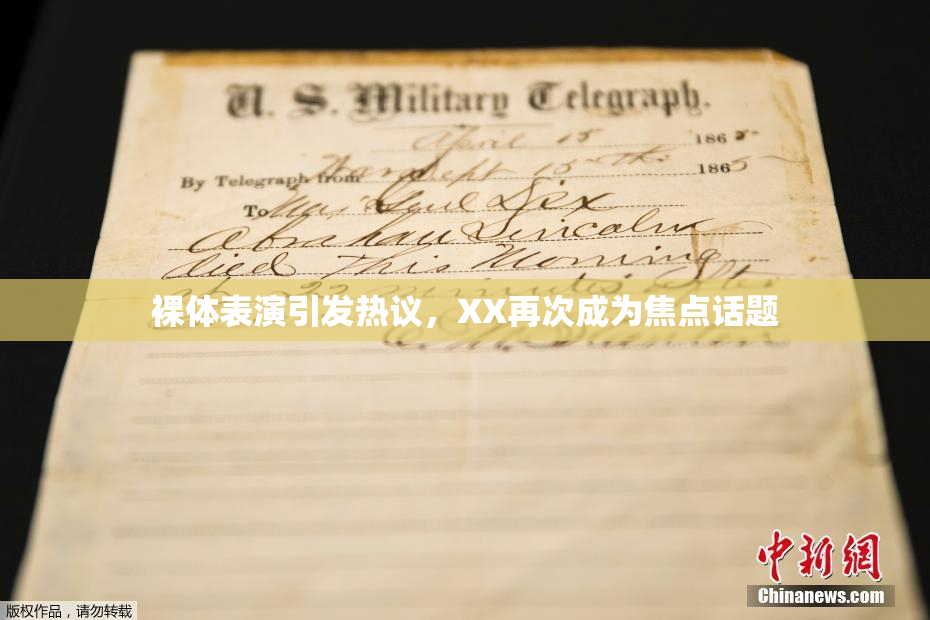 U. S. Military Telegraph.
April 15 1865
By Telegraph from War Dept 15th 1865
To Maj Genl Dix
Abraham Lincoln
died This Morning
at 22 minutes after
裸体表演引发热议，XX再次成为焦点话题
E. M. Stanton
中新网
Chinanews.com
版权作品，请勿转载